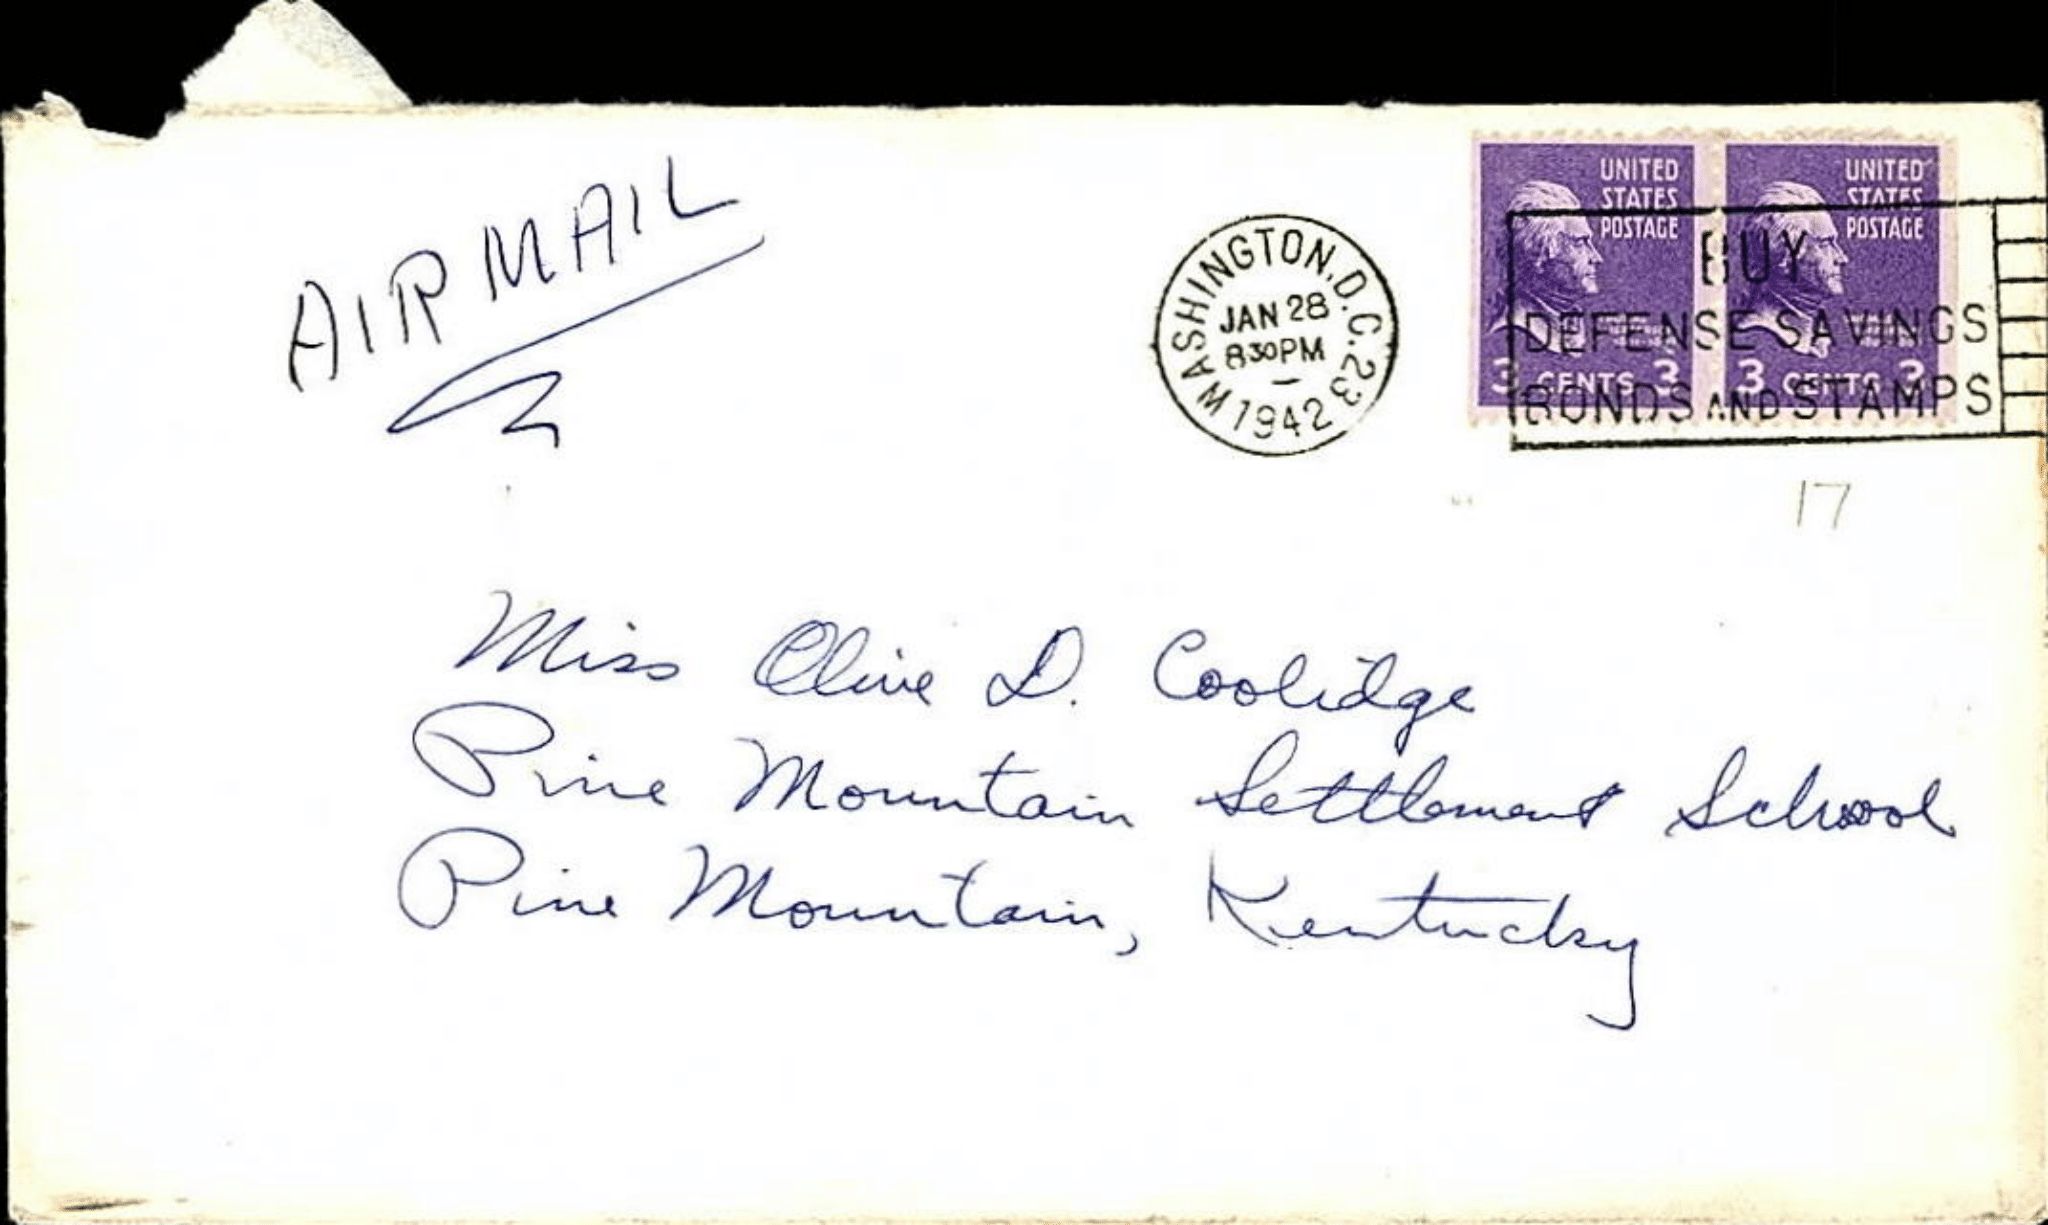 AIRMAIL
WASHINGTON, D.C. 23
JAN 28
8 30 PM
1942
UNITED STATES POSTAGE
3 CENTS 3
UNITED STATES POSTAGE
3 CENTS 3
BUY
DEFENSE SAVINGS
BONDS AND STAMPS
17
Miss Olive D. Coolidge
Pine Mountain Settlement School
Pine Mountain, Kentucky